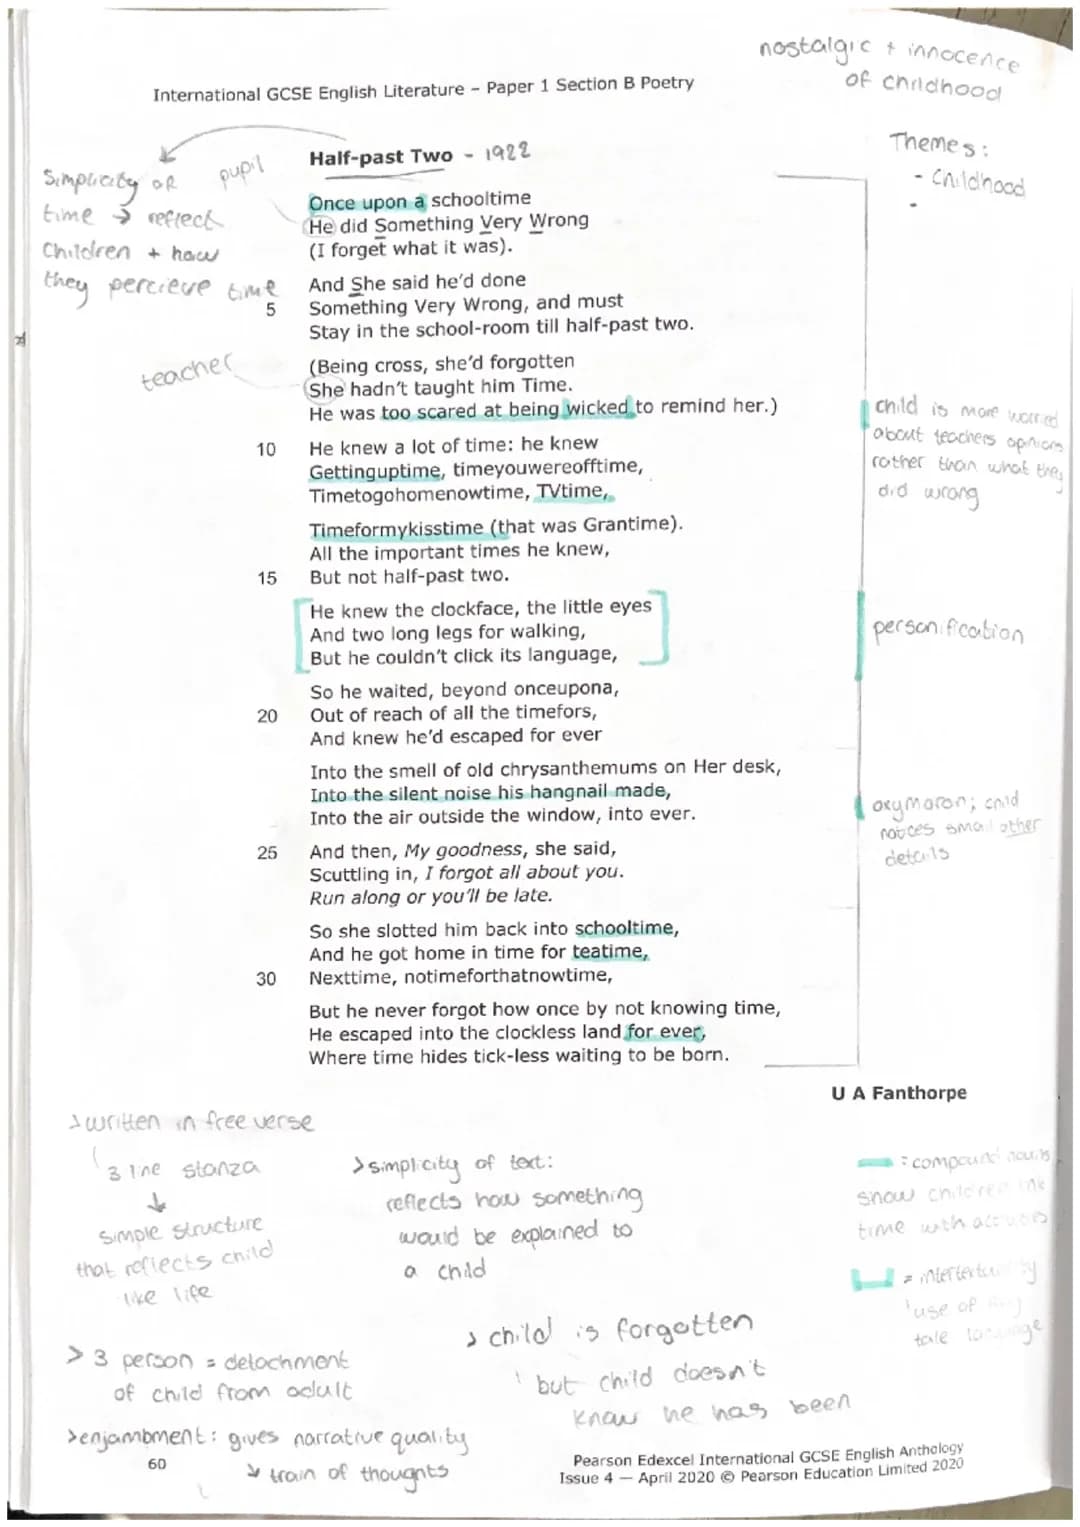 nostalgic + innocence
of childhood
International GCSE English Literature – Paper 1 Section B Poetry
Themes:
- Childhood
-
Simplicity of
time → reflect
Children + how
they percieve time
pupil
teacher
Half-past Two - 1922
Once upon a schooltime
He did Something Very Wrong
(I forget what it was).
And She said he'd done
5 Something Very Wrong, and must
Stay in the school-room till half-past two.
(Being cross, she'd forgotten
She hadn't taught him Time.
He was too scared at being wicked to remind her.)
10 He knew a lot of time: he knew
Gettinguptime, timeyouwereofftime,
Timetogohomenowtime, TVtime,
Timeformykisstime (that was Grantime).
All the important times he knew,
15 But not half-past two.
He knew the clockface, the little eyes
And two long legs for walking,
But he couldn't click its language,
So he waited, beyond onceupona,
20 Out of reach of all the timefors,
And knew he'd escaped for ever
Into the smell of old chrysanthemums on Her desk,
Into the silent noise his hangnail made,
Into the air outside the window, into ever.
25 And then, My goodness, she said,
Scuttling in, I forgot all about you.
Run along or you'll be late.
So she slotted him back into schooltime,
And he got home in time for teatime,
30 Nexttime, notimeforthatnowtime,
But he never forgot how once by not knowing time,
He escaped into the clockless land for ever,
Where time hides tick-less waiting to be born.
U A Fanthorpe
child is more worried
about teachers opinions
rather than what they
did wrong
personification
oxymoron; child
notices small other
details
> written in free verse
3 line stanza
↓
simple structure
that reflects child
like life
> simplicity of text:
reflects how something
would be explained to
a child
= compound nouns
show children link
time with
= intertextuality
use of fairy
tale language
> child is forgotten
but child doesn't
know he has been
> 3 person = detachment
of child from adult
> enjambment: gives narrative quality
↘ train of thoughts
60
Pearson Edexcel International GCSE English Anthology
Issue 4 — April 2020 © Pearson Education Limited 2020